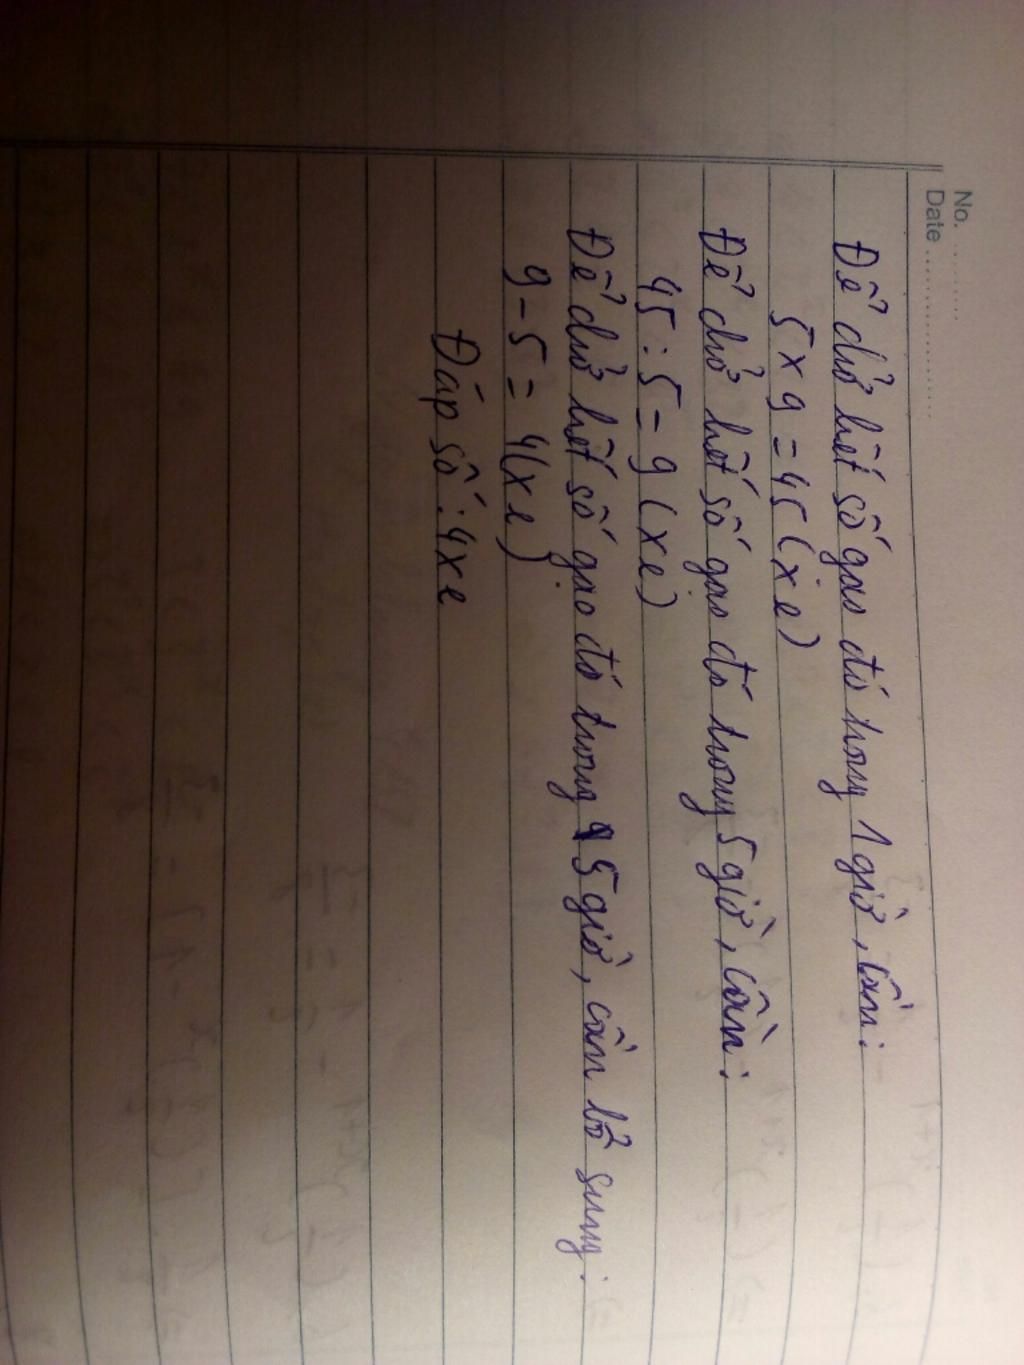 No. ............
Date ....................
Để chở hết số gạo đó trong 1 giờ, cần:
5 x 9 = 45 (xe)
Để chở hết số gạo đó trong 5 giờ, cần:
45 : 5 = 9 (xe)
Để chở hết số gạo đó trong 5 giờ, cần bổ sung:
9 - 5 = 4 (xe)
Đáp số: 4 xe